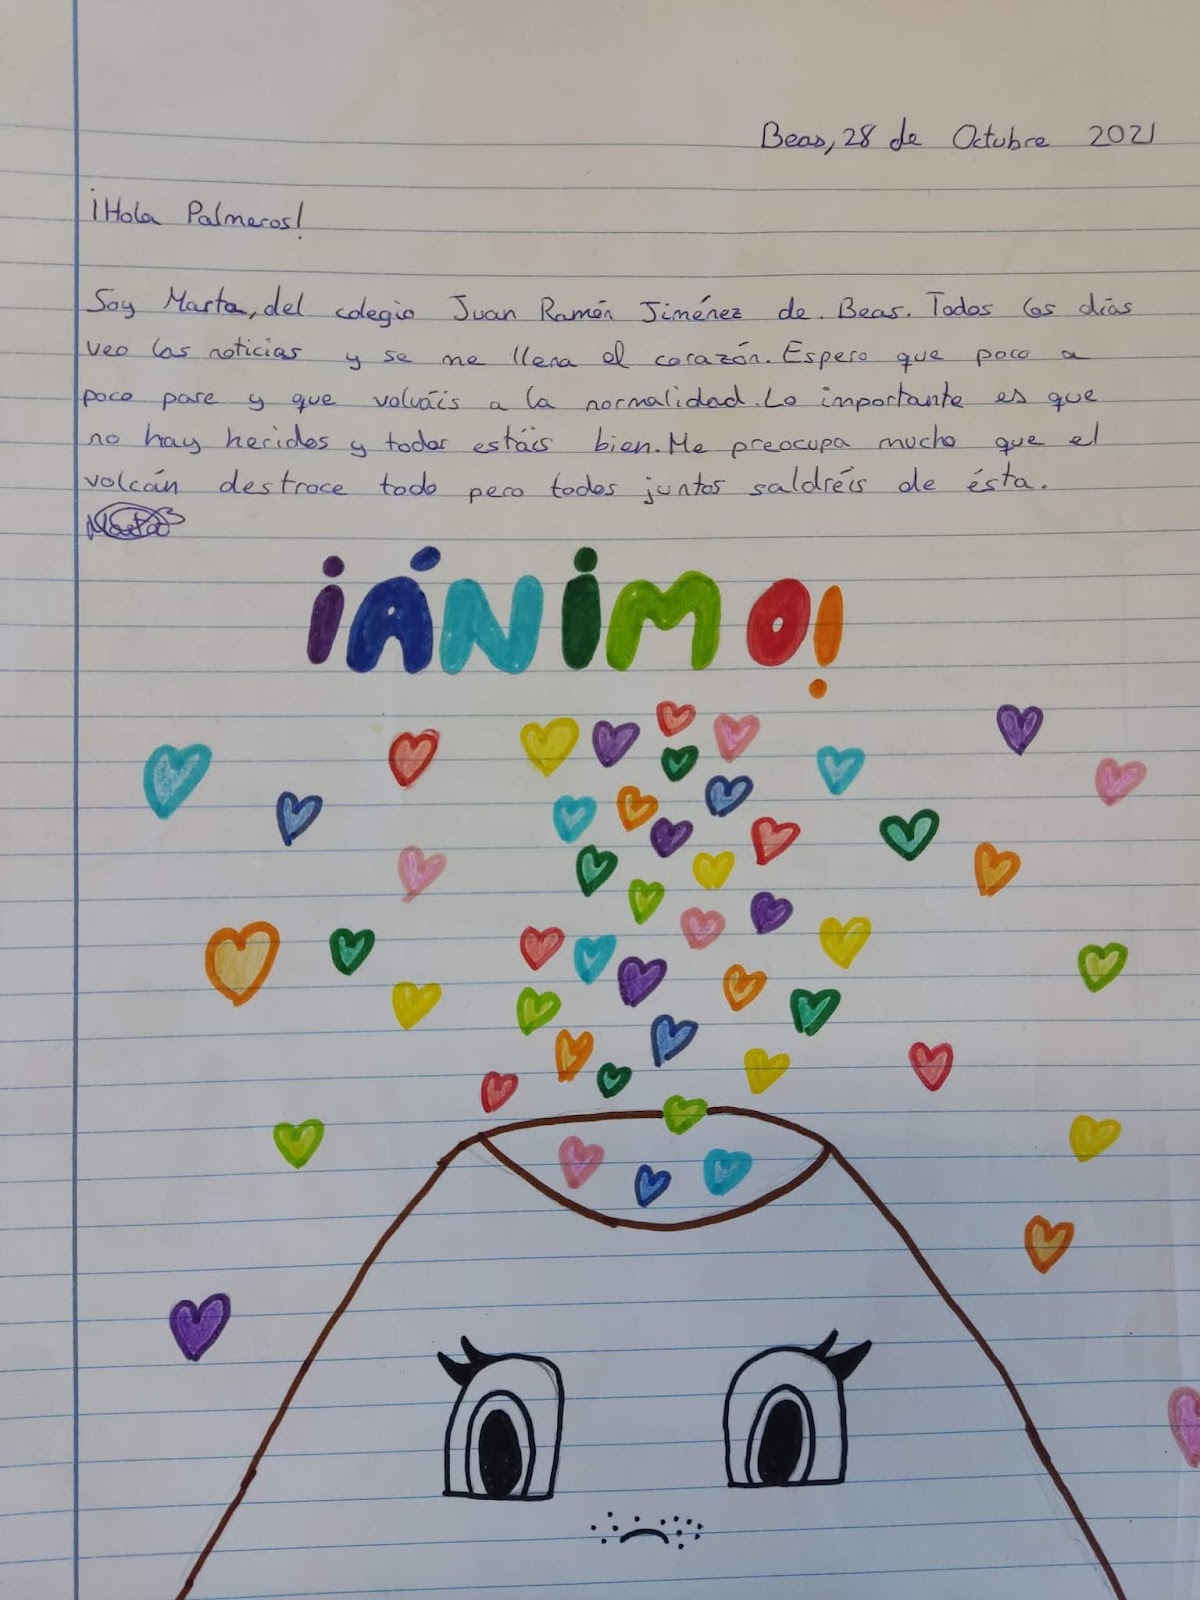 Beas, 28 de Octubre 2021
¡Hola Palmeros!
Soy Marta, del colegio Juan Ramón Jiménez de Beas. Todos los días
veo las noticias y se me llena el corazón. Espero que poco a
poco pare y que volváis a la normalidad. Lo importante es que
no hay heridos y todos estáis bien. Me preocupa mucho que el
volcán destroce todo pero todos juntos saldréis de ésta.
Marta
¡ÁNIMO!